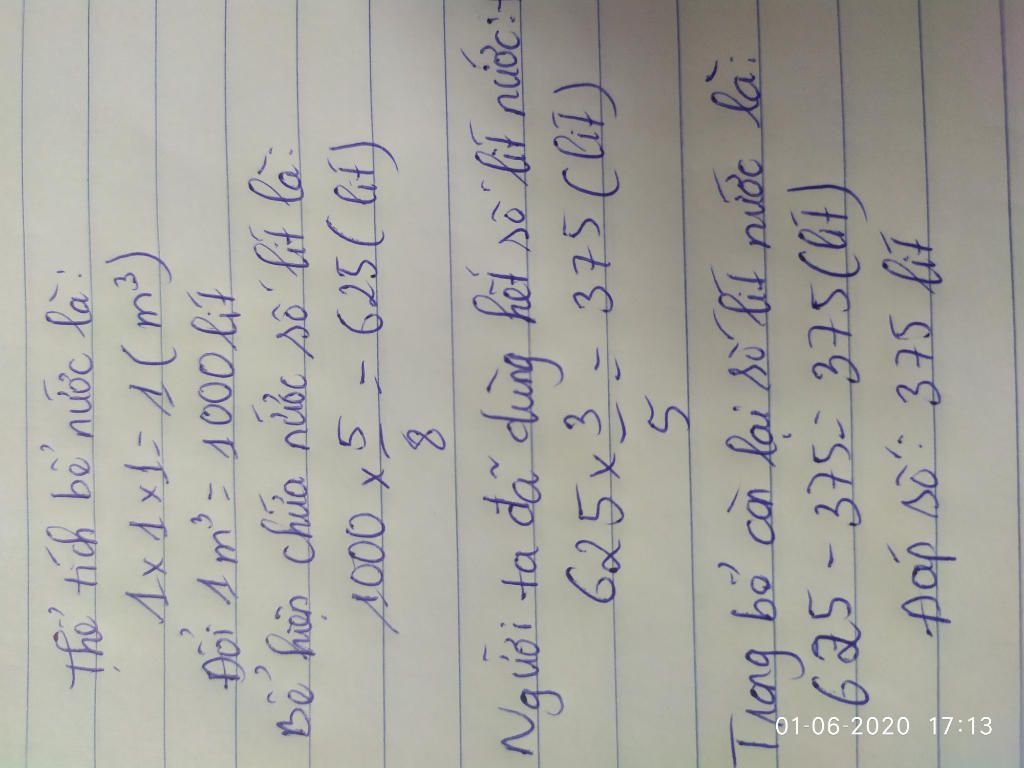 Thể tích bể nước là:
1 x 1 x 1 = 1 ( m³)
Đổi 1 m³ = 1000 lít
Bể hiện chứa nước số lít là:
1000 x 5/8 = 625 ( lít)
Người ta đã dùng hết số lít nước:
625 x 3/5 = 375 ( lít)
Trong bể còn lại số lít nước là:
625 - 375 = 375 (lít)
Đáp số: 375 lít
01-06-2020 17:13